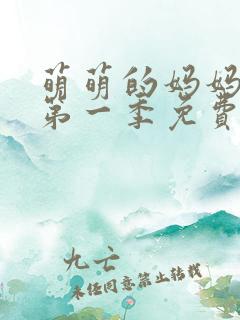 萌萌的妈妈
第一季免費
九亡
未经同意禁止转载